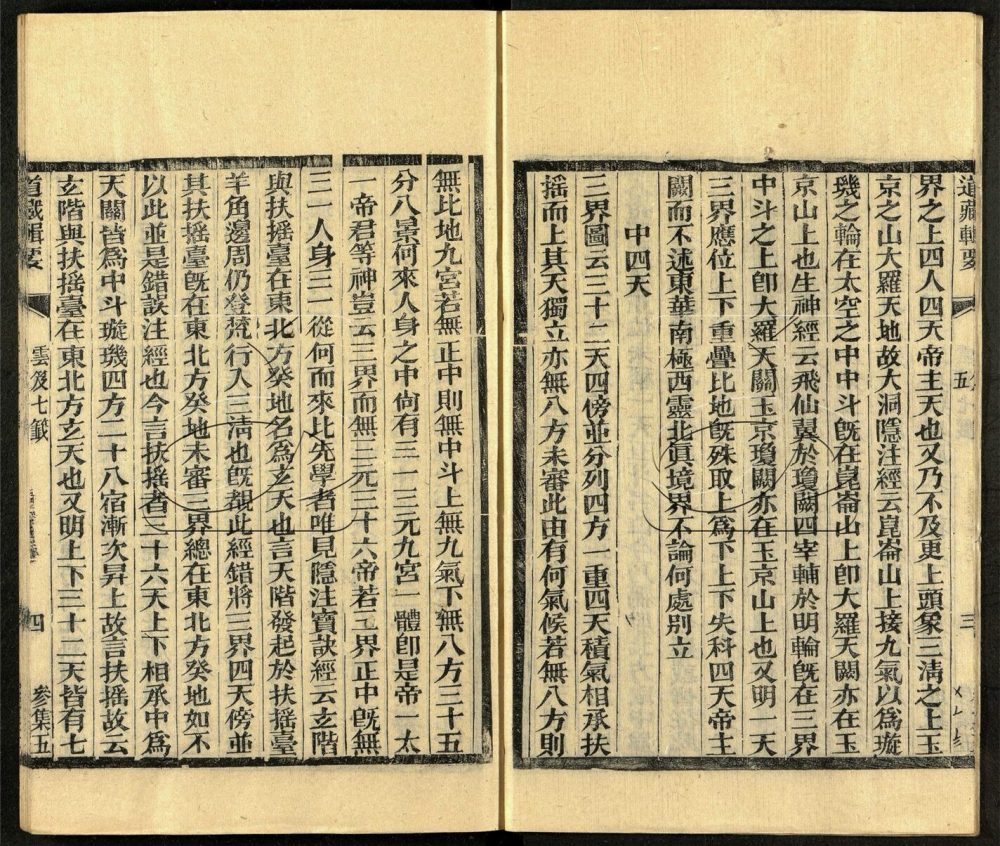 道藏輯要
五
三
界之上四人四天帝主天也又乃不及更上頭象三淸之上玉
京之山大羅天地故大洞隱注經云崑崙山上接九氣以爲璇
璣之輪在太空之中中斗旣在崑崙山上卽大羅天闕亦在玉
京山上也生神經云飛仙翼於瓊闕四宰輔於明輪旣在三界
中斗之上卽大羅天關玉京瓊闕亦在玉京山上也又明一天
三界應位上下重疊比地旣殊取上爲下上下失科四天帝主
闕而不述東華南極西靈北眞境界不論何處別立
中四天
三界圖云三十二天四傍並分列四方一重四天積氣相承扶
搖而上其天獨立亦無八方未審此由有何氣候若無八方則
無比地九宮若無正中則無中斗上無九氣下無八方三十五
分八景何來人身之中尙有三一三元九宮一體卽是帝一太
一帝君等神豈云三界而無三元三十六帝若工界正中旣無
三一人身三一從何而來比先學者唯見隱注寶訣經云玄階
與扶搖臺在東北方癸地名爲玄天也言天階發起於扶搖臺
羊角邊周仍登梵行入三淸也旣覩此經錯將三界四天傍並
其扶搖臺旣在東北方癸地未審三界總在東北方癸地如不
以此並是錯誤注經也今言扶搖者三十六天上下相承中爲
天關皆爲中斗璇璣四方二十八宿漸次昇上故言扶搖故云
玄階與扶搖臺在東北方玄天也又明上下三十二天皆有七
道藏輯要
雲笈七籤
四
參集五